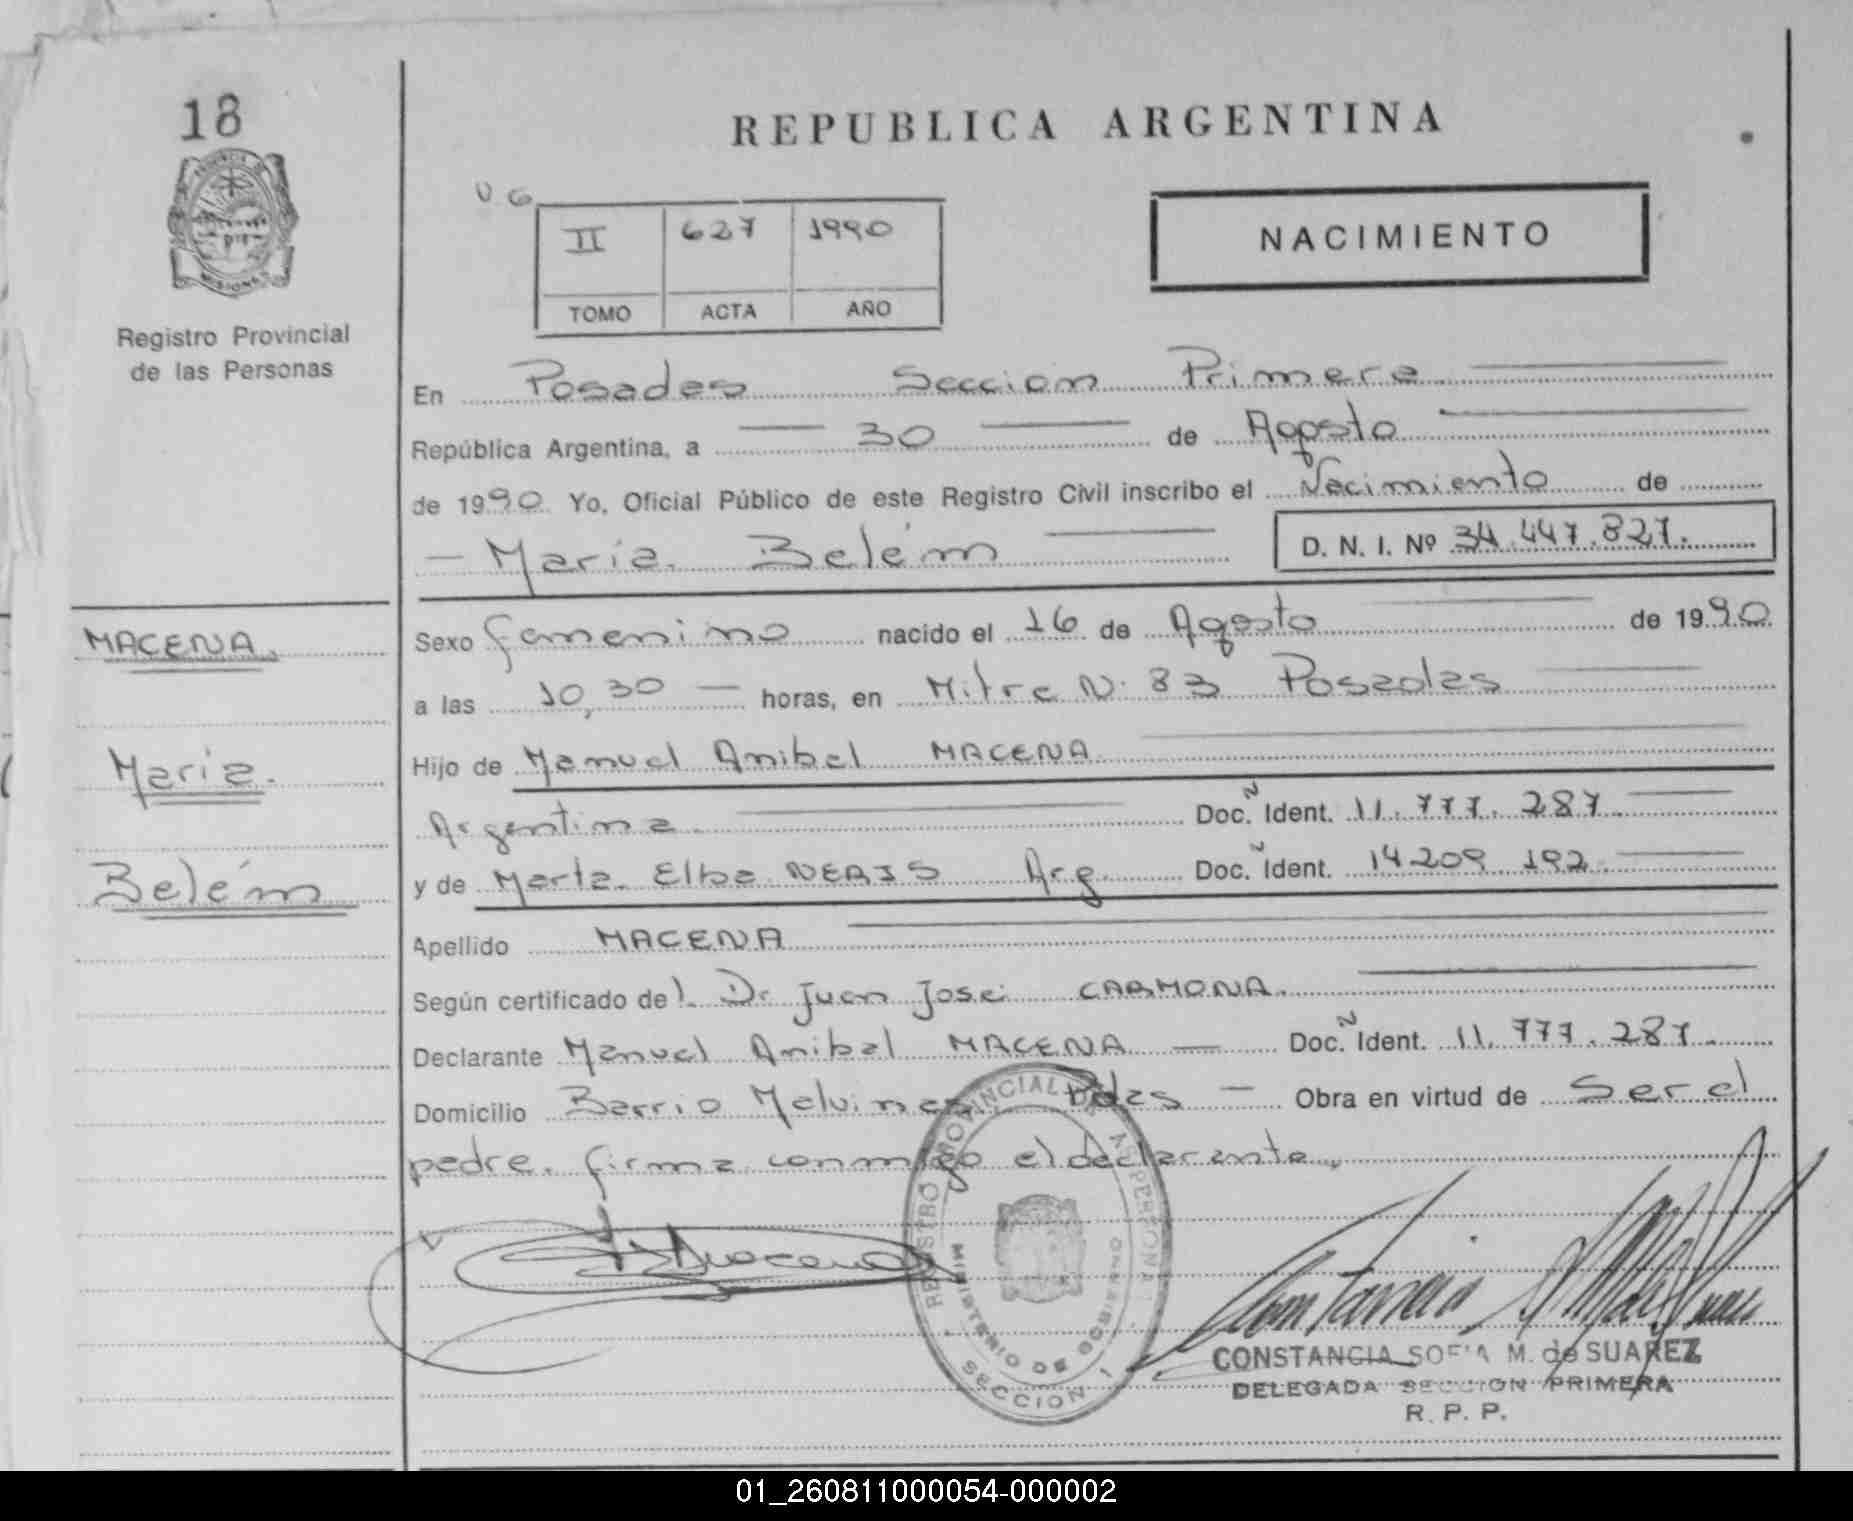 18
REPUBLICA ARGENTINA
V. G.
II 627 1990
TOMO ACTA AÑO
NACIMIENTO
Registro Provincial
de las Personas
En Posadas Seccion Primera
República Argentina, a 30 de Agosto
de 1990. Yo, Oficial Público de este Registro Civil inscribo el Nacimiento de
Maria Belém D. N. I. Nº 34.447.827.
MACENA.
Maria.
Belém
Sexo femenino nacido el 16 de Agosto de 1990.
a las 10,30 horas, en Mitre N. 83 Posadas
Hijo de Manuel Anibal MACENA
Argentina. Doc. N Ident. 11.777.287
y de Marta Elba NERIS Arg. Doc. Ident. 14209 192.
Apellido MACENA
Según certificado del Dr Juan José CARMONA.
Declarante Manuel Anibal MACENA Doc. N Ident. 11.777.287.
Domicilio Barrio Malvinas Pdas Obra en virtud de Ser el
padre. firma conmigo el declarante.
REGISTRO PROVINCIAL DE LAS PERSONAS
MINISTERIO DE GOBIERNO
SECCION 1
CONSTANCIA SOFIA M. de SUAREZ
DELEGADA SECCION PRIMERA
R. P. P.
01_260811000054-000002